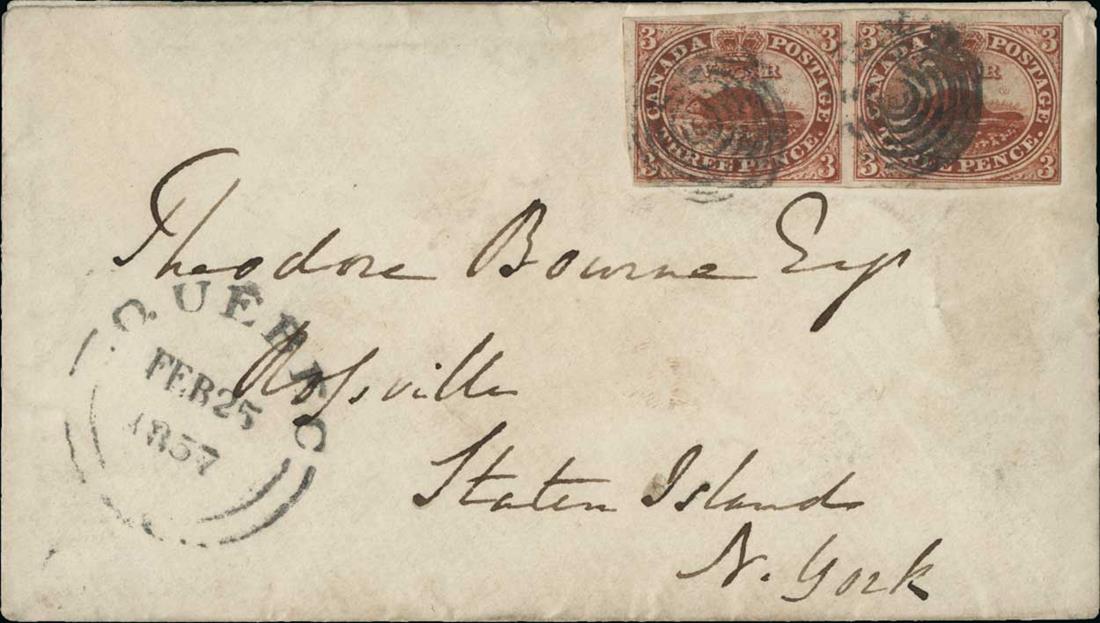 3 CANADA POSTAGE 3
3 THREE PENCE. 3
3 CANADA POSTAGE. 3
3 THREE PENCE. 3
Theodore Bourne Esqr
Rossville
Staten Island
N. York
QUEBEC
FEB 25
1857